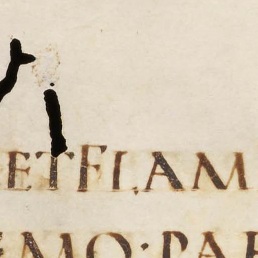 ETFLAM
EMO·PAR